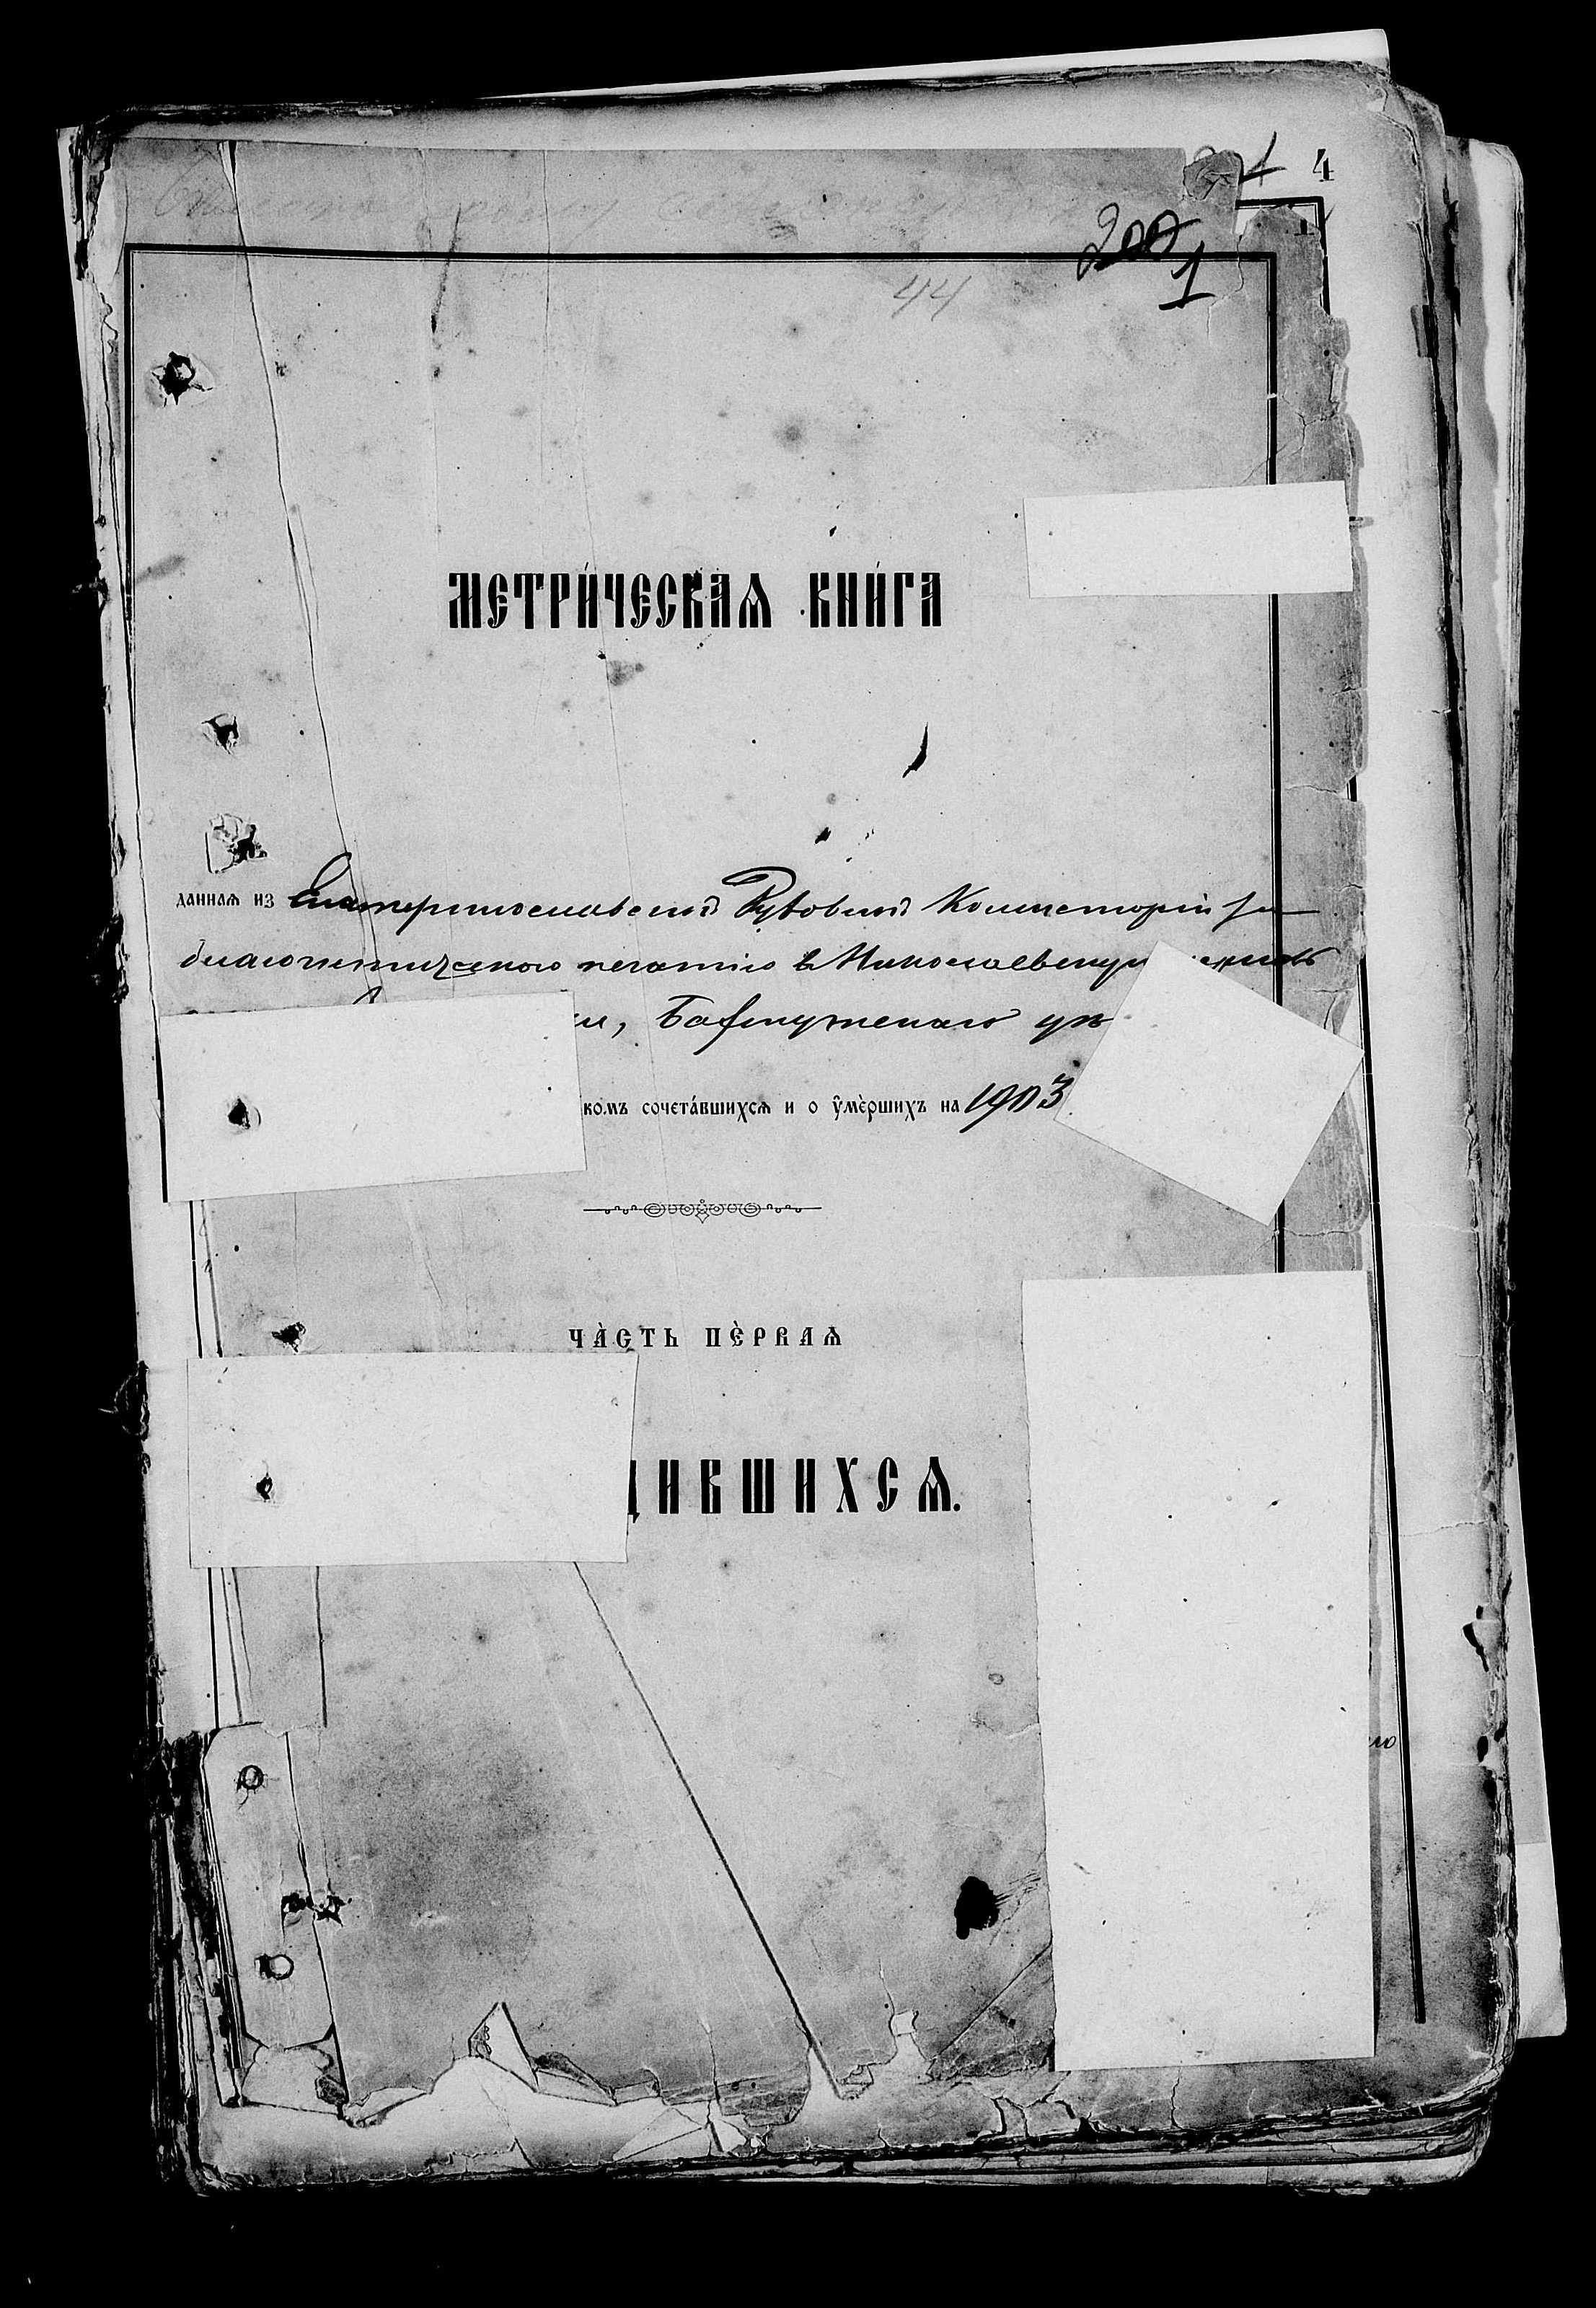 4
200
1
44
МЕТРИ́ЧЕСКАѦ КНИ́ГА
даннаѧ из Екатеринославской Духовной Консисторіи за
благочинническою печатію в Николаевскую
Бахмутского уѣ
комъ сочета́вшихсѧ и о ᲂумѐршихъ на 1903
ЧА̀СТЬ ПЀРВАѦ
ДИВШИХСѦ.